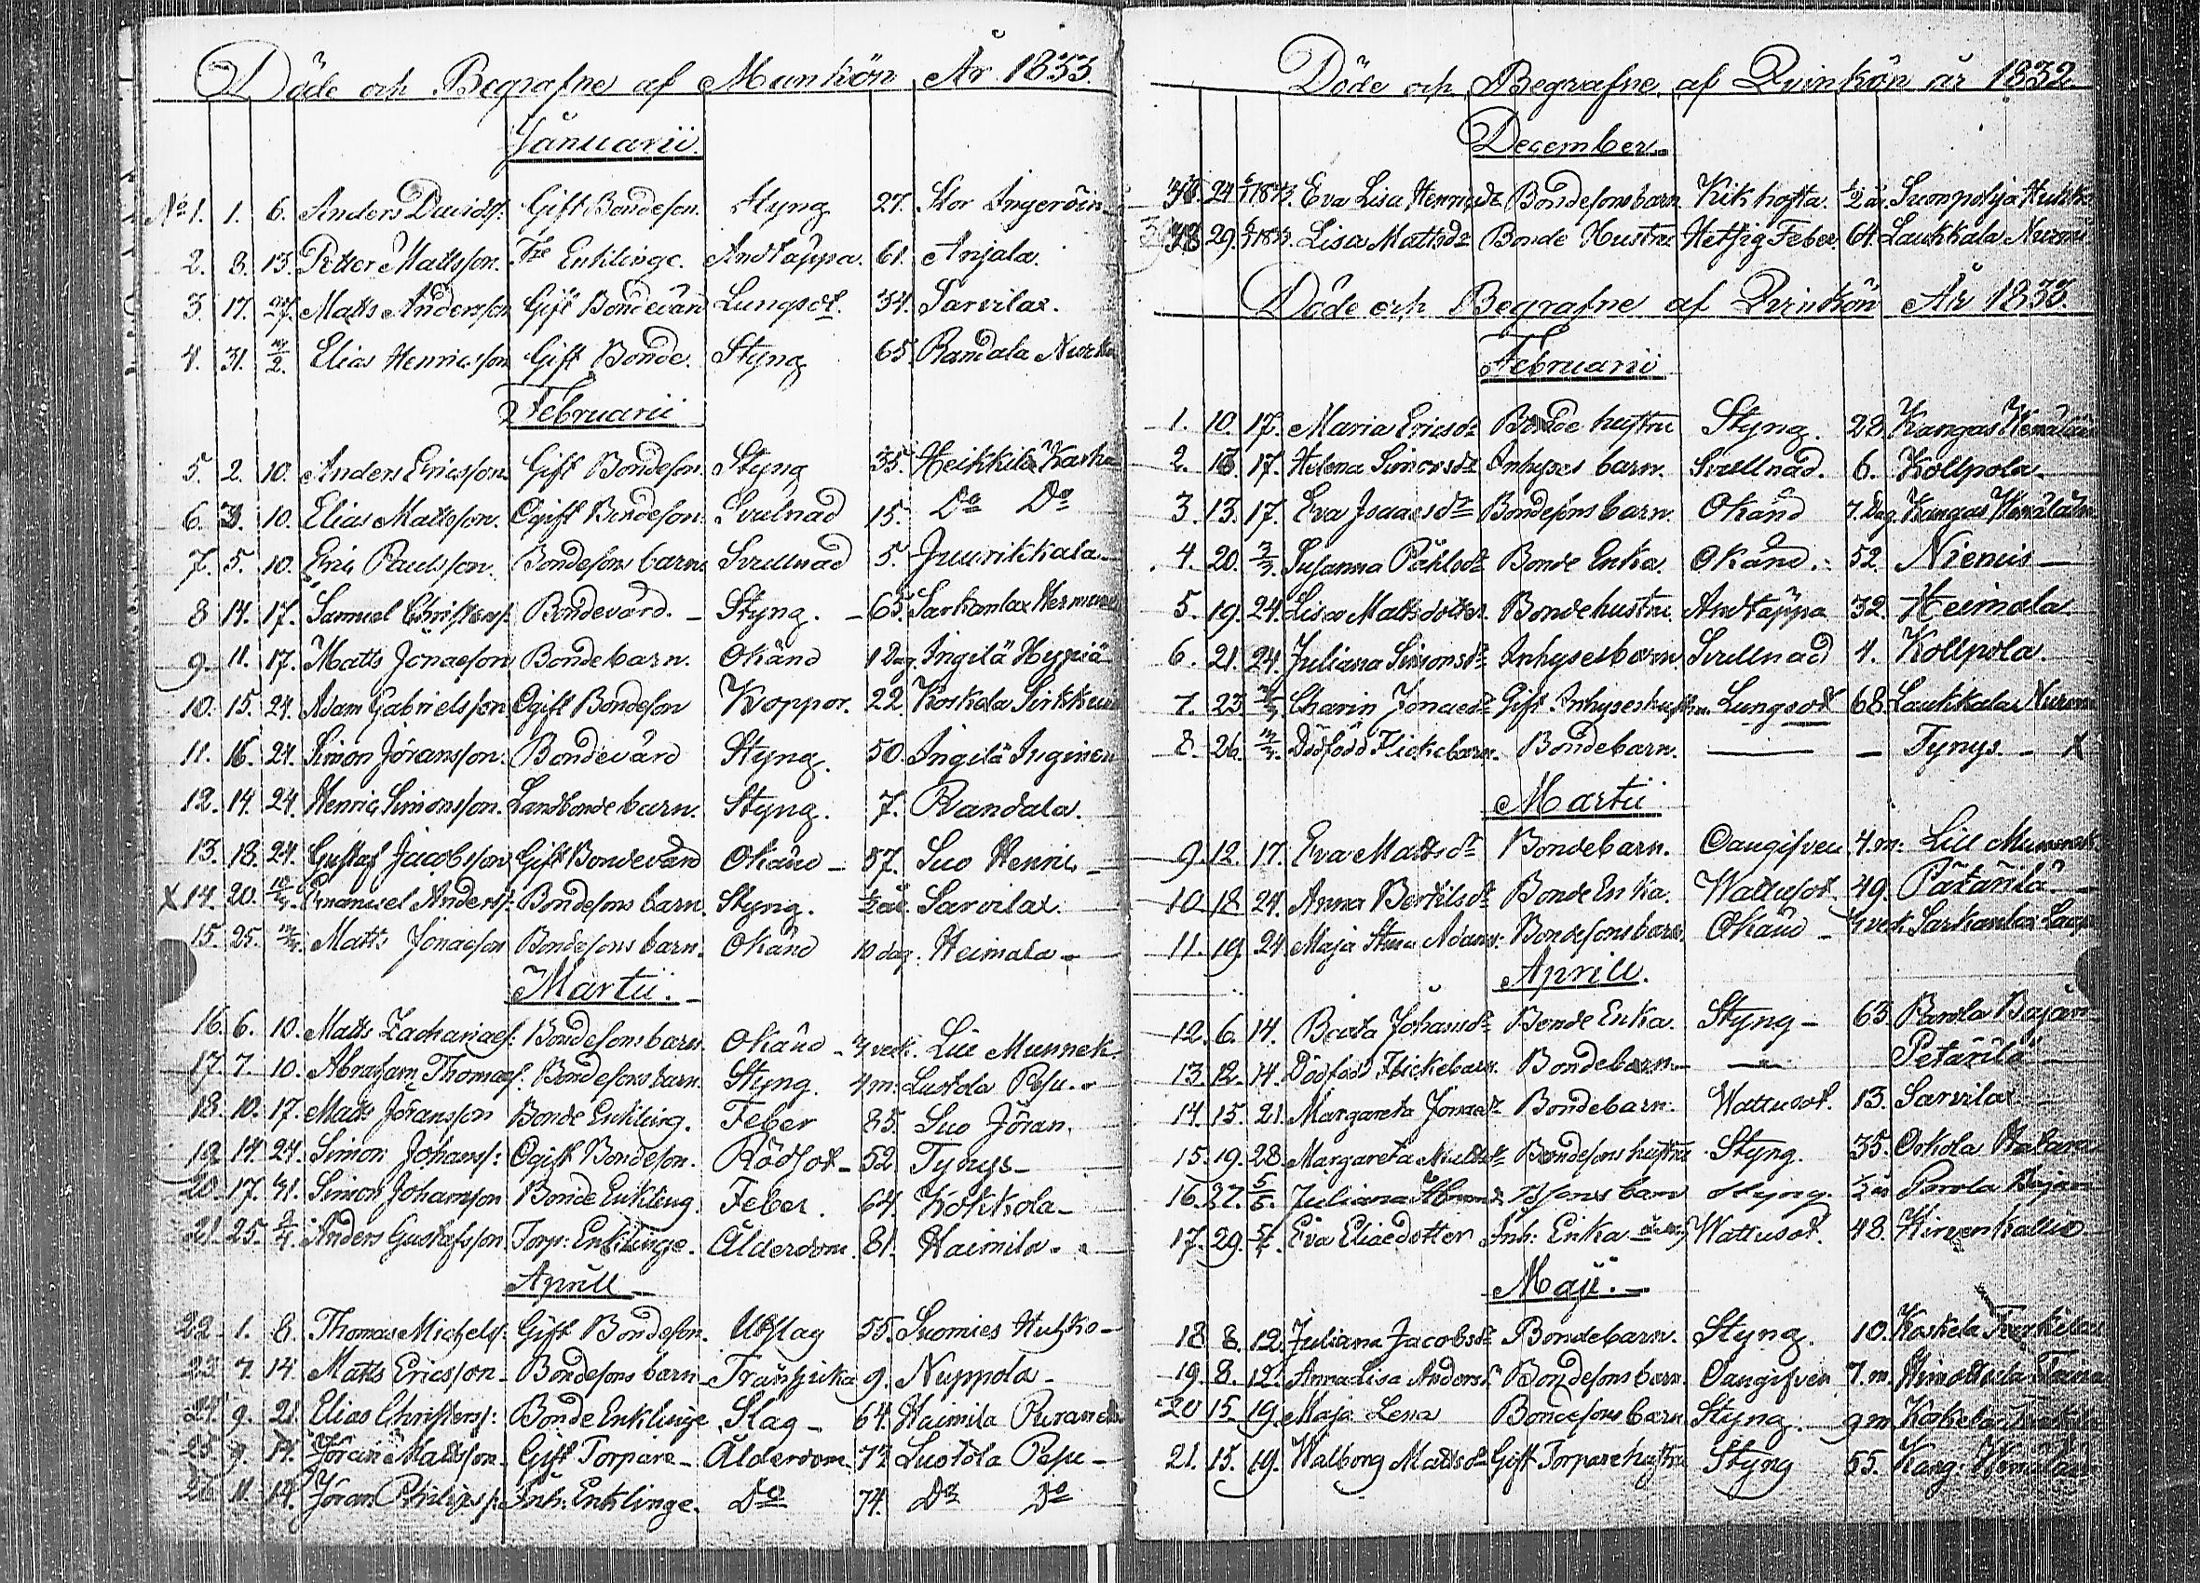 Döde och Begrafne af Mankön År 1833.
Januarii.
No 1. 1. 6. Anders Davids. Gift Bondeson. Styng 27. Stor
2. 8. 13. Petter Mattsson. Enklinge. Andtäppa. 61. Anjala.
3. 17. 27. Matts Andersson Gift Bondevärd Lungsot. 34. Sarvilax.
4. 31. Elias Henricsson Gift Bonde. Styng 65. Randala
Februarii
5. 2. 10. Anders Ericsson. Gift Bondeson. Styng 35. Heikkilä
6. 3. 10. Elias Mattsson. Ogift Bondeson. Svulnad 15. Do Do
7. 5. 10. Eric Paulsson. Bondesons barn. Svullnad 5. Juurikkala
8 14. 17. Samuel Christers. Bondevärd. Styng. 65. Sarkanlax
9. 11. 17. Matts Jönaeson Bondebarn. Okänd 1 Dag. Ingilä Hyppiä
10. 15. 24. Adam Gabrielsson Ogift Bondeson Koppor. 22. Koskola
11. 16. 24. Simon Jöransson. Bondevärd Styng. 50. Ingilä
12. 14. 24. Henric Simonsson. Landbonde barn. Styng. 7. Randala.
13. 18. 24. Gustaf Jacobsson Gift Bondevärd Okänd 57. Suo Henric
X 14. 20. Emanuel Anders. Bondesons barn. Styng. 1/2 år. Sarvilax.
15. 25. Matts Jönaeson Bondesons barn. Okänd 10 dag. Heimala
Martii.
16. 6. 10. Matts Zachariaes: Bondesons barn. Okänd Munnek.
17. 7. 10. Abraham Thomaes. Bondesons barn. Styng. 4 m: Lustola Pesu.
18. 10. 17. Matts Jöransson Bonde Enkling. Feber 85. Suo Jöran.
19. 14. 24. Simon Johans: Ogift Bondeson. Rödsot 52 Tynys
20. 17. 31. Simon Johansson Bonde Enkling. Feber. 64. Kokkola
21. 25. 2/4. Anders Gustafsson Torp: Enklinge. Ålderdom. 81. Haimila.
Aprill
22. 1. 8. Thomas Michels. Gift Bondeson. Utslag 55. Suomies
23. 7. 14. Matts Ericsson Bondesons barn 9. Nuppola
24. 9. 21. Elias Christers: Bonde Enklinge Slag 64. Haimila
25. 9. 14. Jöran Mattsson. Gift Torpare Ålderdom. 72 Lustola Pesu
26. 11. 14. Jöran Philips Inh: Enklinge. Do 74. Do Do
Döde och Begrafne af Qvinkön år 1832
December.
24 Eva Lisa Henricsdr Bondesons barn Kikhosta. 1/2 år.
29. Lisa Mattsdr Bonde Hustru Hetsig Feber 64. Laukkala
Döde och Begrafne af Qvinkön År 1833.
Februarii
1. 10. 17. Maria Ericsdr Bonde hustru Styng. 28 Kangas
2. 13. 17. Helena Simonsdr Inhyses barn. Svullnad. 6. Kollpola
3. 13. 17. Eva Isaacsdr Bondesons barn. Okänd 7. Dag. Kangas
4. 20. 3/3. Susanna Påhlsdr Bonde Enka. Okänd. 52. Niemis
5. 19. 24. Lisa Mattsdotter. Bonde hustru. Andtäppa 32. Heimala
6. 21. 24. Juliana Simonsdr Inhyses barn Svullnad 4. Kollpola
7. 23. Charin Jönaedr Gift Inhyseshustru. Lungsot 68. Laukkala
8. 26. Dödfödd Flickebarn. Bondebarn. Tynys. X
Martii
9. 12. 17. Eva Mattsdr Bondebarn. Oangifven 4. m: Lill
10. 18. 24. Anna Bertilsdr Bonde Enka. Wattusot. 49. Pätärilä
11. 19. 24 Maja Stina Adams: Bondesons barn. Okänd Sarkanlax
Aprill.
12. 6. 14. Beata Johansdr Bonde Enka. Styng 63.
13. 12. 14. Dödfödd Flickebarn. Bondebarn Petärilä
14. 15. 21. Margareta Jönaedr Bondebarn. Wattusot. 13. Sarvilax.
15. 19. 28. Margareta Mattsdr Bondesons hustru Styng. 35.
16. 27. 5/5. Juliana barn Styng. 1/2 år
17. 29. 5/5. Eva Eliaedotter Inh: Enka Wattusot. 48. Kirvenkallio
Maji.
18. 8. 12. Juliana Jacobsdr Bondebarn. Styng. 10. Koskela
19. 8. 12. Anna Lisa Andersdr Bondesons barn Oangifven 7. m.
20 15. 19. Maja Lena Bondesons barn Styng. 9 m Koskela
21. 15. 19. Walborg Mattsdr Gift Torpare hustru Styng 55. Kang: